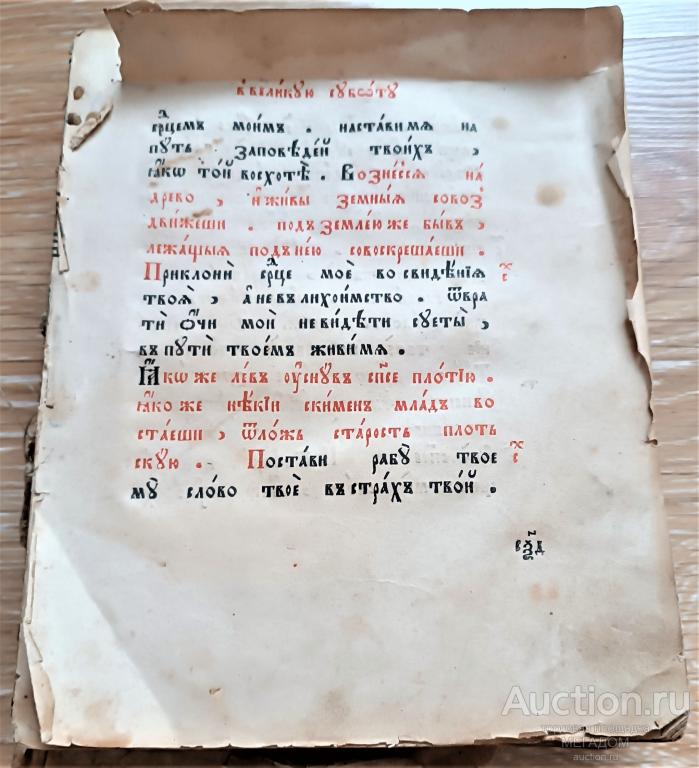 в вели́кꙋю сꙋбѡ́тꙋ
срⷣцемъ мои́мъ . наста́ви мѧ на
пꙋть за́повѣде́й твои́хъ ,
ꙗ҆́кѡ то́й восхотѣ̀ . Вознесе́сѧ на́
древо , и҆живы̀ земны́ѧ совоз
дви́жеши . подъземле́юже бы́въ ,
лежа́щыѧ подъне́ю совоскреша́еши .
Приклонѝ срⷣце моѐ во свидѣ́нїѧ
твоѧ̀ , а҆ невъ лихои́мство . ѿвра
тѝ ѻ҆́чи моѝ не ви́дѣти сꙋеты̀ ,
въ пꙋтѝ твое́мъ живи́мѧ .
Ꙗ҆́коже ле́въ оу҆снꙋ́въ сп҃се пло́тїю .
ꙗ҆́коже нѣ́кїи ски́менъ мла́дъ во
стае́ши , ѿло́жь ста́рость пло́ть
скꙋю . Поста́ви рабꙋ̀ твое
мꙋ̀ сло́во твоѐ въ стра́хъ тво́й .
Auction.ru
МЕГАДОМ
auction.ru